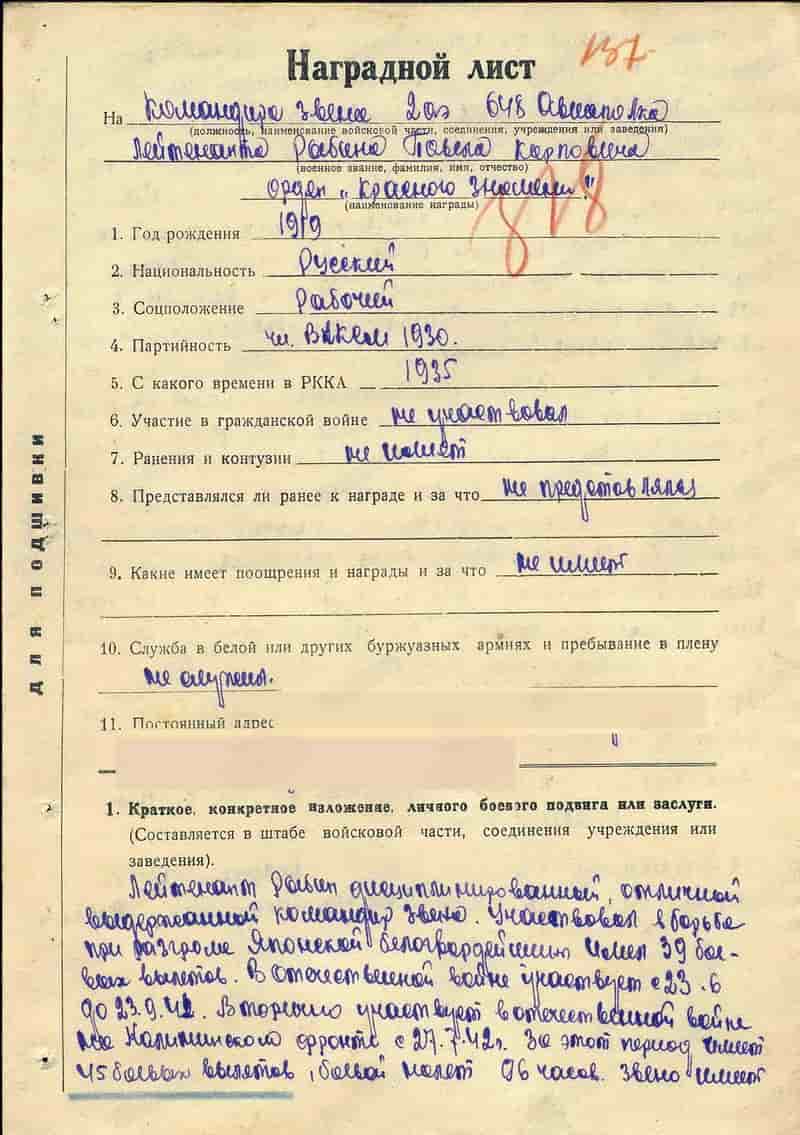 137
Наградной лист
На Командира звена 2аэ 648 Авиаполка
(должность, наименование войсковой части, соединения, учреждения или заведения)
Лейтенанта Рабина Павела Карповича
(военное звание, фамилия, имя, отчество)
Орден „Красного Знамени"
(наименование награды)
878
1. Год рождения 1919
2. Национальность Русский
3. Соцположение Рабочий
4. Партийность чл. ВЛКСМ 1930.
5. С какого времени в РККА 1935
6. Участие в гражданской войне не участвовал
7. Ранения и контузии не имеет
8. Представлялся ли ранее к награде и за что не представлялся
9. Какие имеет поощрения и награды и за что не имеет
10. Служба в белой или других буржуазных армиях и пребывание в плену
не служил.
11. Постоянный адрес
1. Краткое, конкретное изложение, личного боевого подвига или заслуги.
(Составляется в штабе войсковой части, соединения учреждения или
заведения).
Лейтенант Рабин дисциплинированный, отличной
выдержанной командир звена. Участвовал в борьбе
при разгроме Японской белогвардейщины Имел 39 бое-
вых вылетов. В Отечественной войне участвует с 23.6
до 23.9.41. Вторично участвует в отечественной войне
на Калининского фронте с 27.7.42г. За этот период имеет
45 боевых вылетов, боевой налет 96 часов. Звено имеет
для подшивки